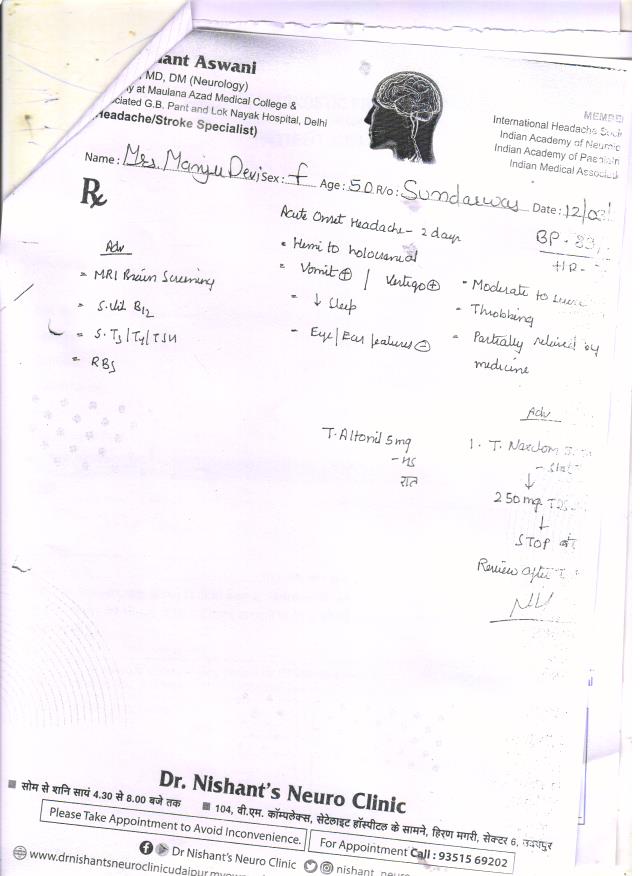 ant Aswani
MD, DM (Neurology)
y at Maulana Azad Medical College &
ciated G.B. Pant and Lok Nayak Hospital, Delhi
Headache/Stroke Specialist)
MEMBE
International Headache Soci
Indian Academy of Neurolo
Indian Academy of
Indian Medical Associat
Name: Mrs. Manju Devi Sex: f Age: 50 R/o: Date: 12/03/
Rx
Acute Onset Headache - 2 days
BP -
HR -
- Hemi to holocranial
- Vomit ⊕ / Vertigo ⊕
- ↓ sleep
- Eye/Ear features ⊖
- Moderate to severe
- Throbbing
- Partially relieved by
medicine
Adv
- MRI Brain Screening
- S. Vit B12
- S. T3/T4/TSH
- RBS
T. Altonil 5mg
- HS
रात
Adv
1. T. Naxdom
- Stat
↓
250mg TDS
↓
STOP
Review after
Dr. Nishant's Neuro Clinic
सोम से शनि सायं 4.30 से 8.00 बजे तक
104, वी.एम. कॉम्पलेक्स, सेटेलाइट हॉस्पीटल के सामने, हिरण मगरी, सेक्टर 6, उदयपुर
Please Take Appointment to Avoid Inconvenience.
For Appointment Call : 93515 69202
Dr Nishant's Neuro Clinic
nishant_neuro
www.drnishantsneuroclinicudaipur.